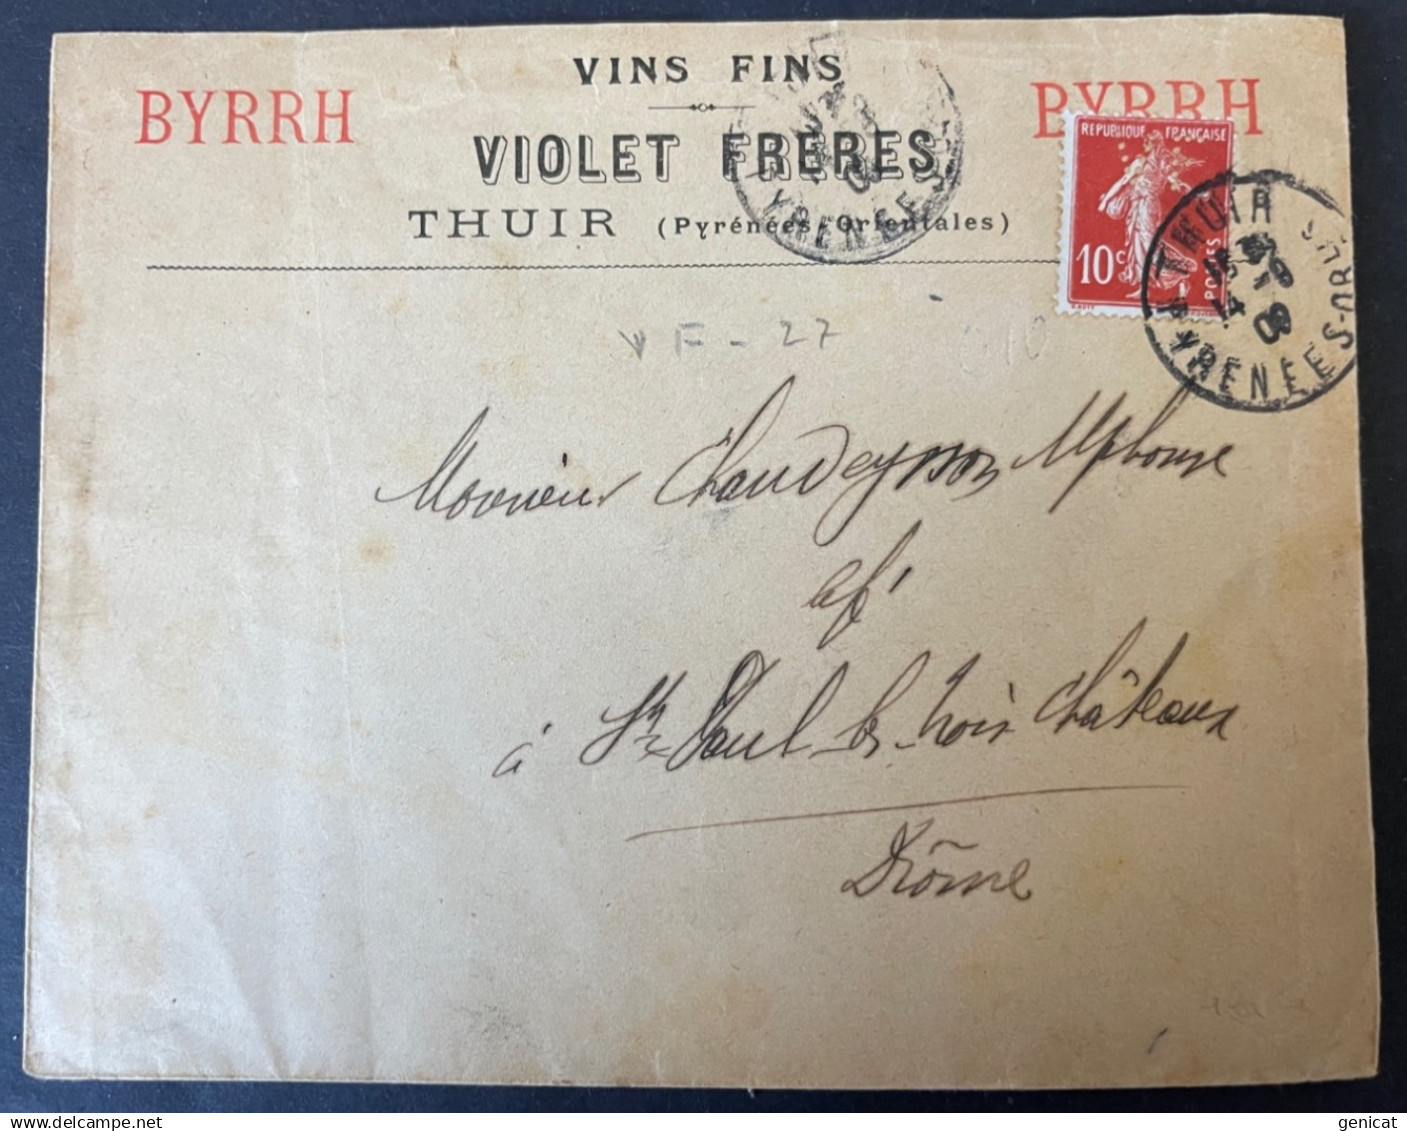 VINS FINS
BYRRH
BYRRH
VIOLET FRÈRES
THUIR (Pyrénées-Orientales)
REPUBLIQUE FRANÇAISE
10c
POSTES
THUIR
14 -9
09
PYRENEES-ORLES
PYRENEES
VF-27
Monsieur Chaudeysson Alphonse
à St Paul les trois Châteaux
Drôme
genicat